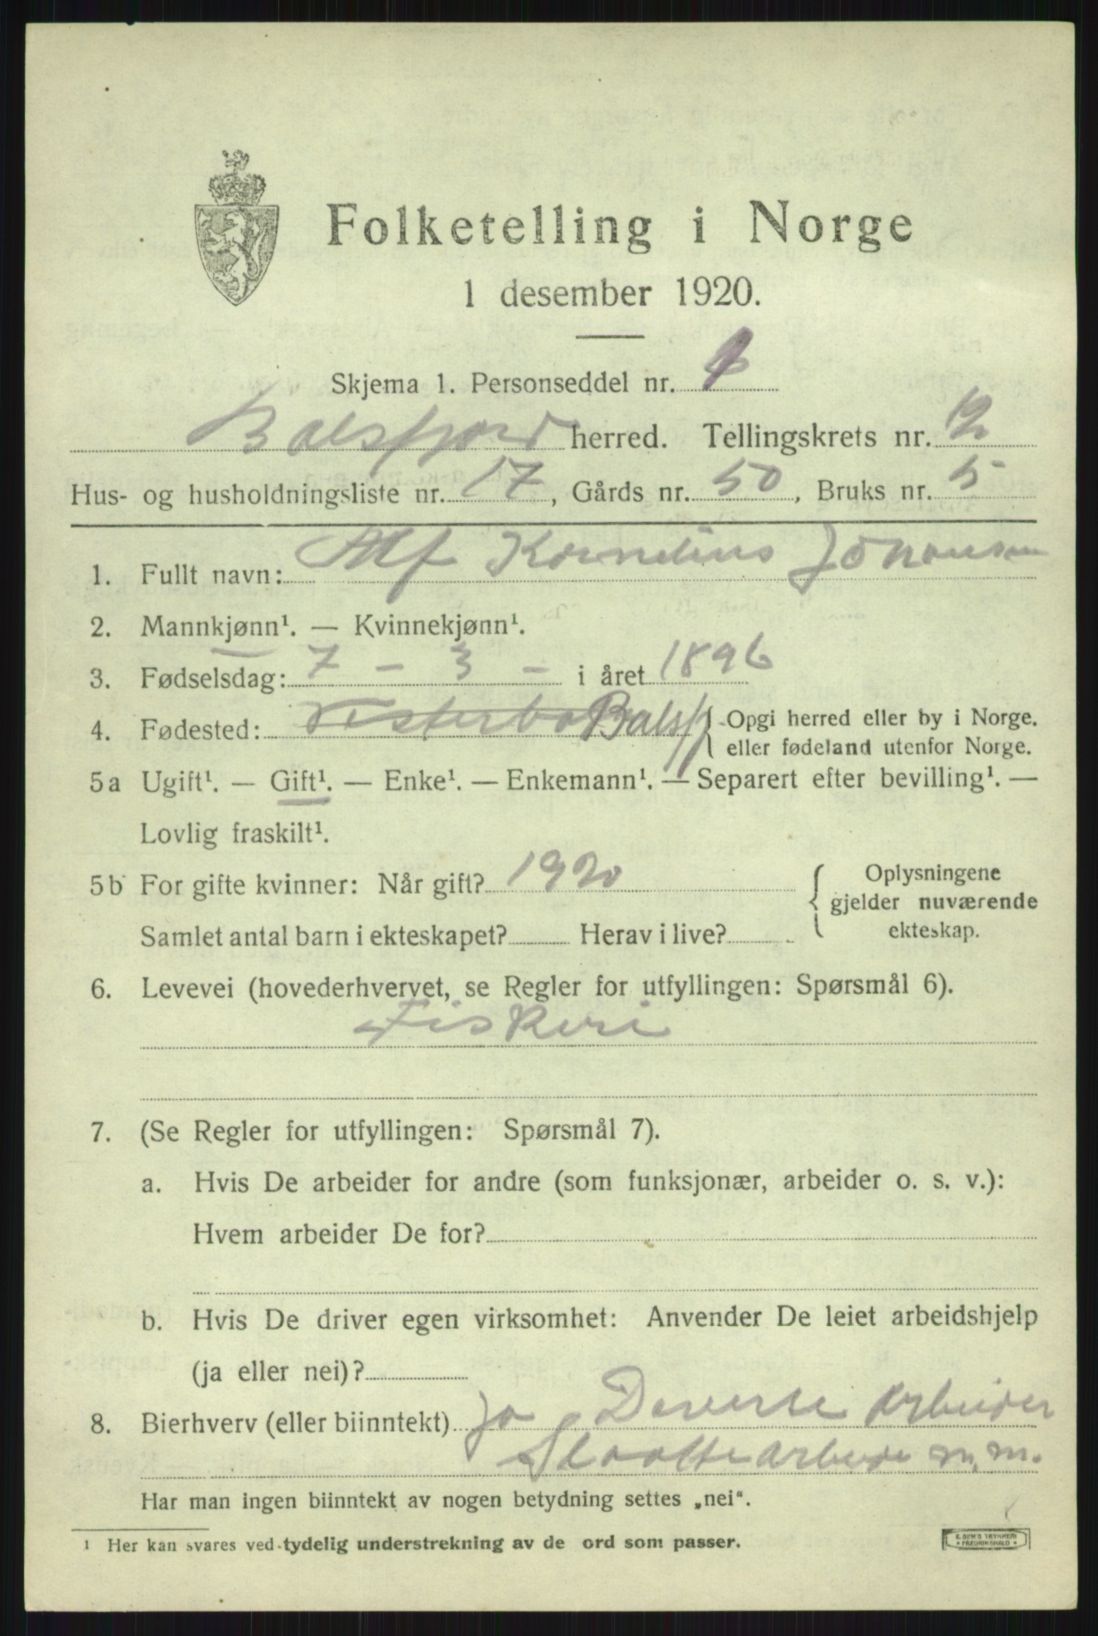 Folketelling i Norge
1 desember 1920.
Skjema 1. Personseddel nr. 1
Balsfjord herred. Tellingskrets nr. 12
Hus- og husholdningsliste nr. 17, Gårds nr. 50, Bruks nr. 5
1. Fullt navn: Alf Kornelius Johansen
2. Mannkjønn¹. — Kvinnekjønn¹.
3. Fødselsdag: 7 - 3 - i året 1896
4. Fødested: Balsfj { Opgi herred eller by i Norge.
eller fødeland utenfor Norge.
5a Ugift¹. — Gift¹. — Enke¹. — Enkemann¹. — Separert efter bevilling¹. —
Lovlig fraskilt¹.
5b For gifte kvinner: Når gift? 1920
Samlet antal barn i ekteskapet? Herav i live?
{ Oplysningene
gjelder nuværende
ekteskap.
6. Levevei (hovederhvervet, se Regler for utfyllingen: Spørsmål 6).
Fiskeri
7. (Se Regler for utfyllingen: Spørsmål 7).
a. Hvis De arbeider for andre (som funksjonær, arbeider o. s. v.):
Hvem arbeider De for?
b. Hvis De driver egen virksomhet: Anvender De leiet arbeidshjelp
(ja eller nei)?
8. Bierhverv (eller biinntekt) Ja Deverse arbeider
Slaatte arbeide m.m.
Har man ingen biinntekt av nogen betydning settes „nei“.
¹ Her kan svares ved tydelig understrekning av de ord som passer.